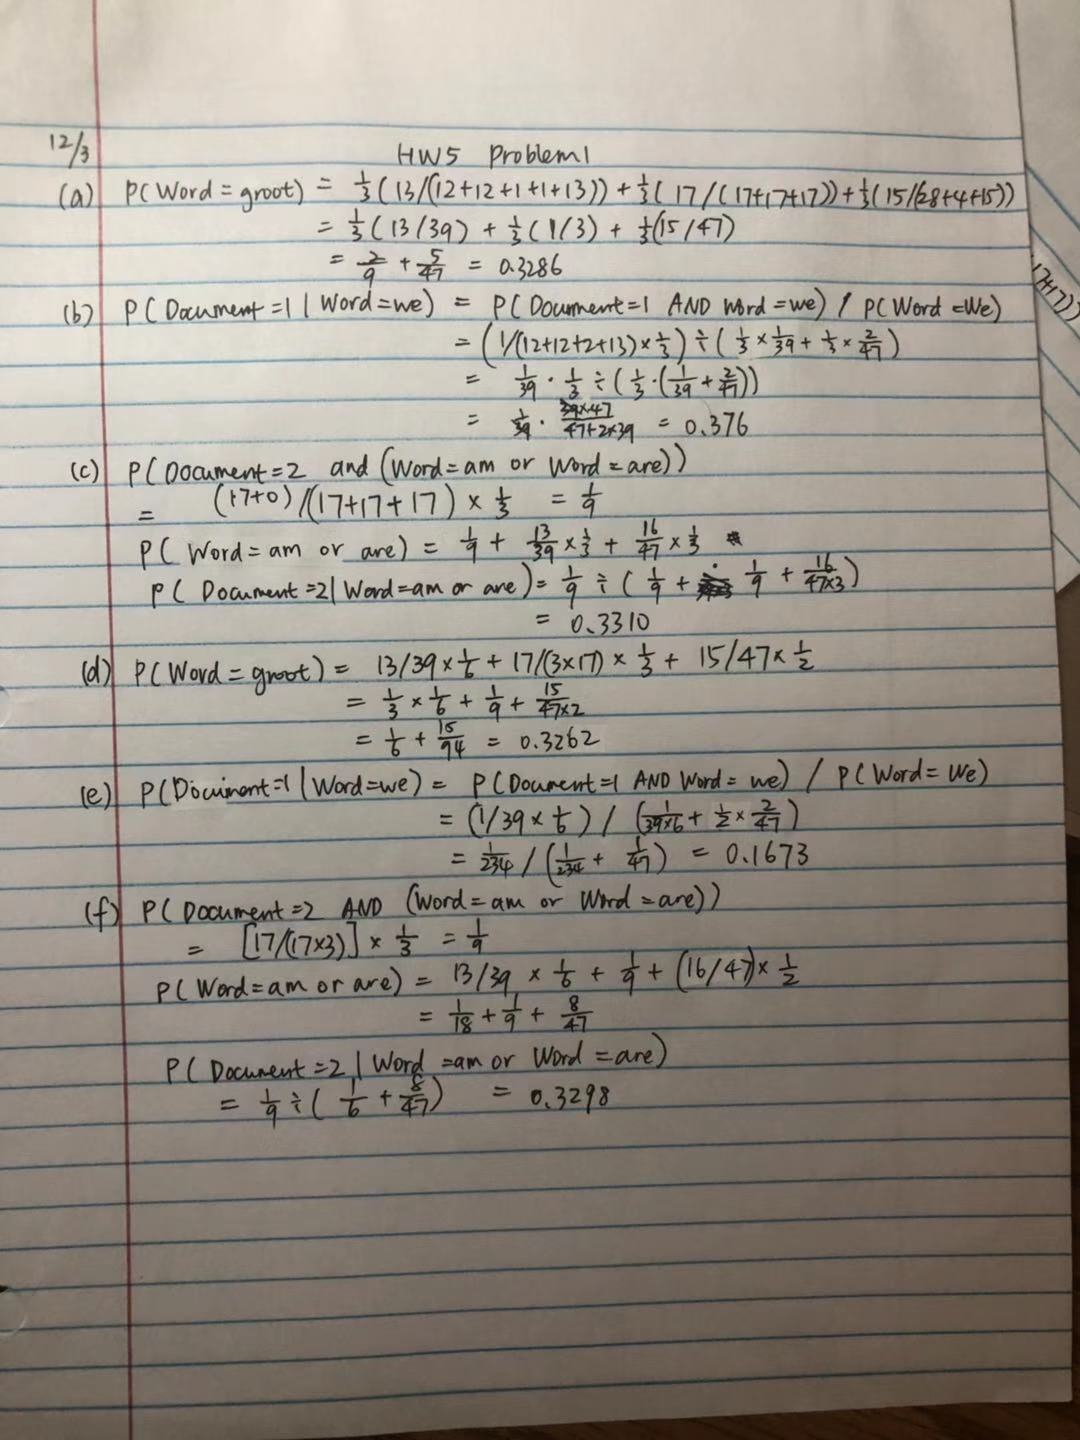 12/3
HW5 Problem1
(a) P(Word = groot) = 1/3 (13/(12+12+1+1+13)) + 1/3 (17/(17+17+17)) + 1/3 (15/(28+4+15))
= 1/3 (13/39) + 1/3 (1/3) + 1/3 (15/47)
= 2/9 + 5/47 = 0.3286
(b) P(Document=1 | Word=we) = P(Document=1 AND word=we) / P(Word=We)
= (1/(12+12+2+13) × 1/3) ÷ (1/3 × 1/39 + 1/3 × 2/47)
= 1/39 · 1/3 ÷ (1/3 · (1/39 + 2/47))
= 1/39 · 39×47/47+2×39 = 0.376
(c) P(Document=2 and (Word=am or Word=are))
= (17+0)/(17+17+17) × 1/3 = 1/9
P(Word=am or are) = 1/9 + 13/39 × 1/3 + 16/47 × 1/3
P(Document=2 | Word=am or are) = 1/9 ÷ (1/9 + 1/9 + 16/47×3)
= 0.3310
(d) P(Word=groot) = 13/39 × 1/6 + 17/(3×17) × 1/3 + 15/47 × 1/2
= 1/3 × 1/6 + 1/9 + 15/47×2
= 1/6 + 15/94 = 0.3262
(e) P(Document=1 | Word=we) = P(Document=1 AND Word=we) / P(Word=We)
= (1/39 × 1/6) / (1/39×6 + 1/2 × 2/47)
= 1/234 / (1/234 + 1/47) = 0.1673
(f) P(Document=2 AND (Word=am or Word=are))
= [17/(17×3)] × 1/3 = 1/9
P(Word=am or are) = 13/39 × 1/6 + 1/9 + (16/47) × 1/2
= 1/18 + 1/9 + 8/47
P(Document=2 | Word=am or Word=are)
= 1/9 ÷ (1/6 + 8/47) = 0.3298